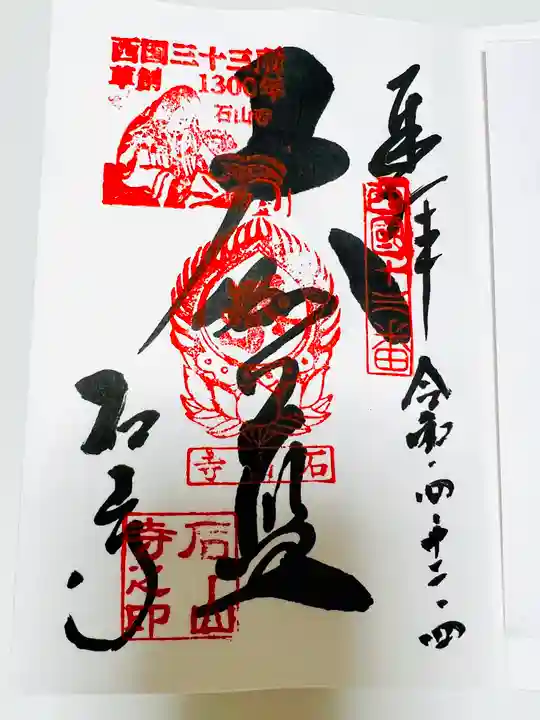 奉拝
西國十三番
令和・四・十二・四
西国三十三所
草創 1300年
石山寺
大伽藍
石山寺
石山寺
石山
寺之印